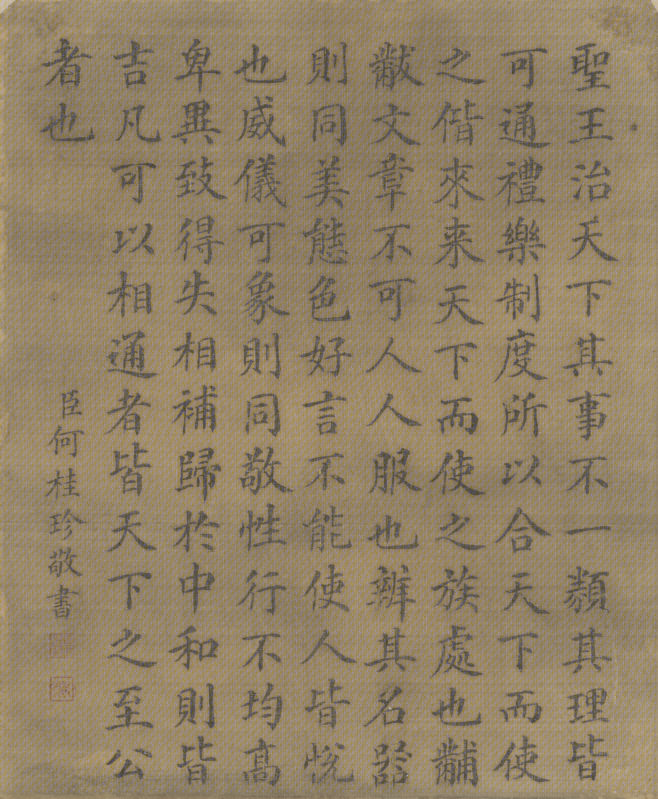 聖王治天下其事不一類其理皆
可通禮樂制度所以合天下而使
之偕來来天下而使之族處也黼
黻文章不可人人服也辨其名器
則同美態色好言不能使人皆悅
也威儀可象則同敬性行不均高
卑異致得失相補歸於中和則皆
吉凡可以相通者皆天下之至公
者也
臣何桂珍敬書